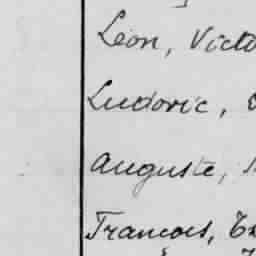 Léon, Victo
Ludovic,
Auguste,
Francois,